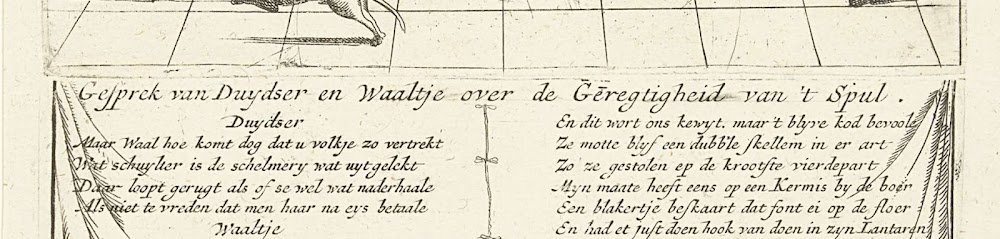 Gesprek van Duydser en Waaltje over de Gēregtigheid van 't Spul.
Duydser
Maar Waal hoe komt dog dat u volkje zo vertrekt
Wat schuylter is de schelmery wat uytgelekt
Daar loopt gerugt als of se wel wat naderhaale
Als niet te vreden dat men haar na eys betaale
Waaltje
En dit wort ons kewyt. maar't blyve kod bevoole
Ze motte blyf een dubble skellem in er art
Zo ze gestolen ep de krootste vierdepart
Myn maate heeft eens op een Kermis by de boer
Een blakertje beskaart dat font ei op de floer
En had et just doen hook van doen in zyn Lantaren